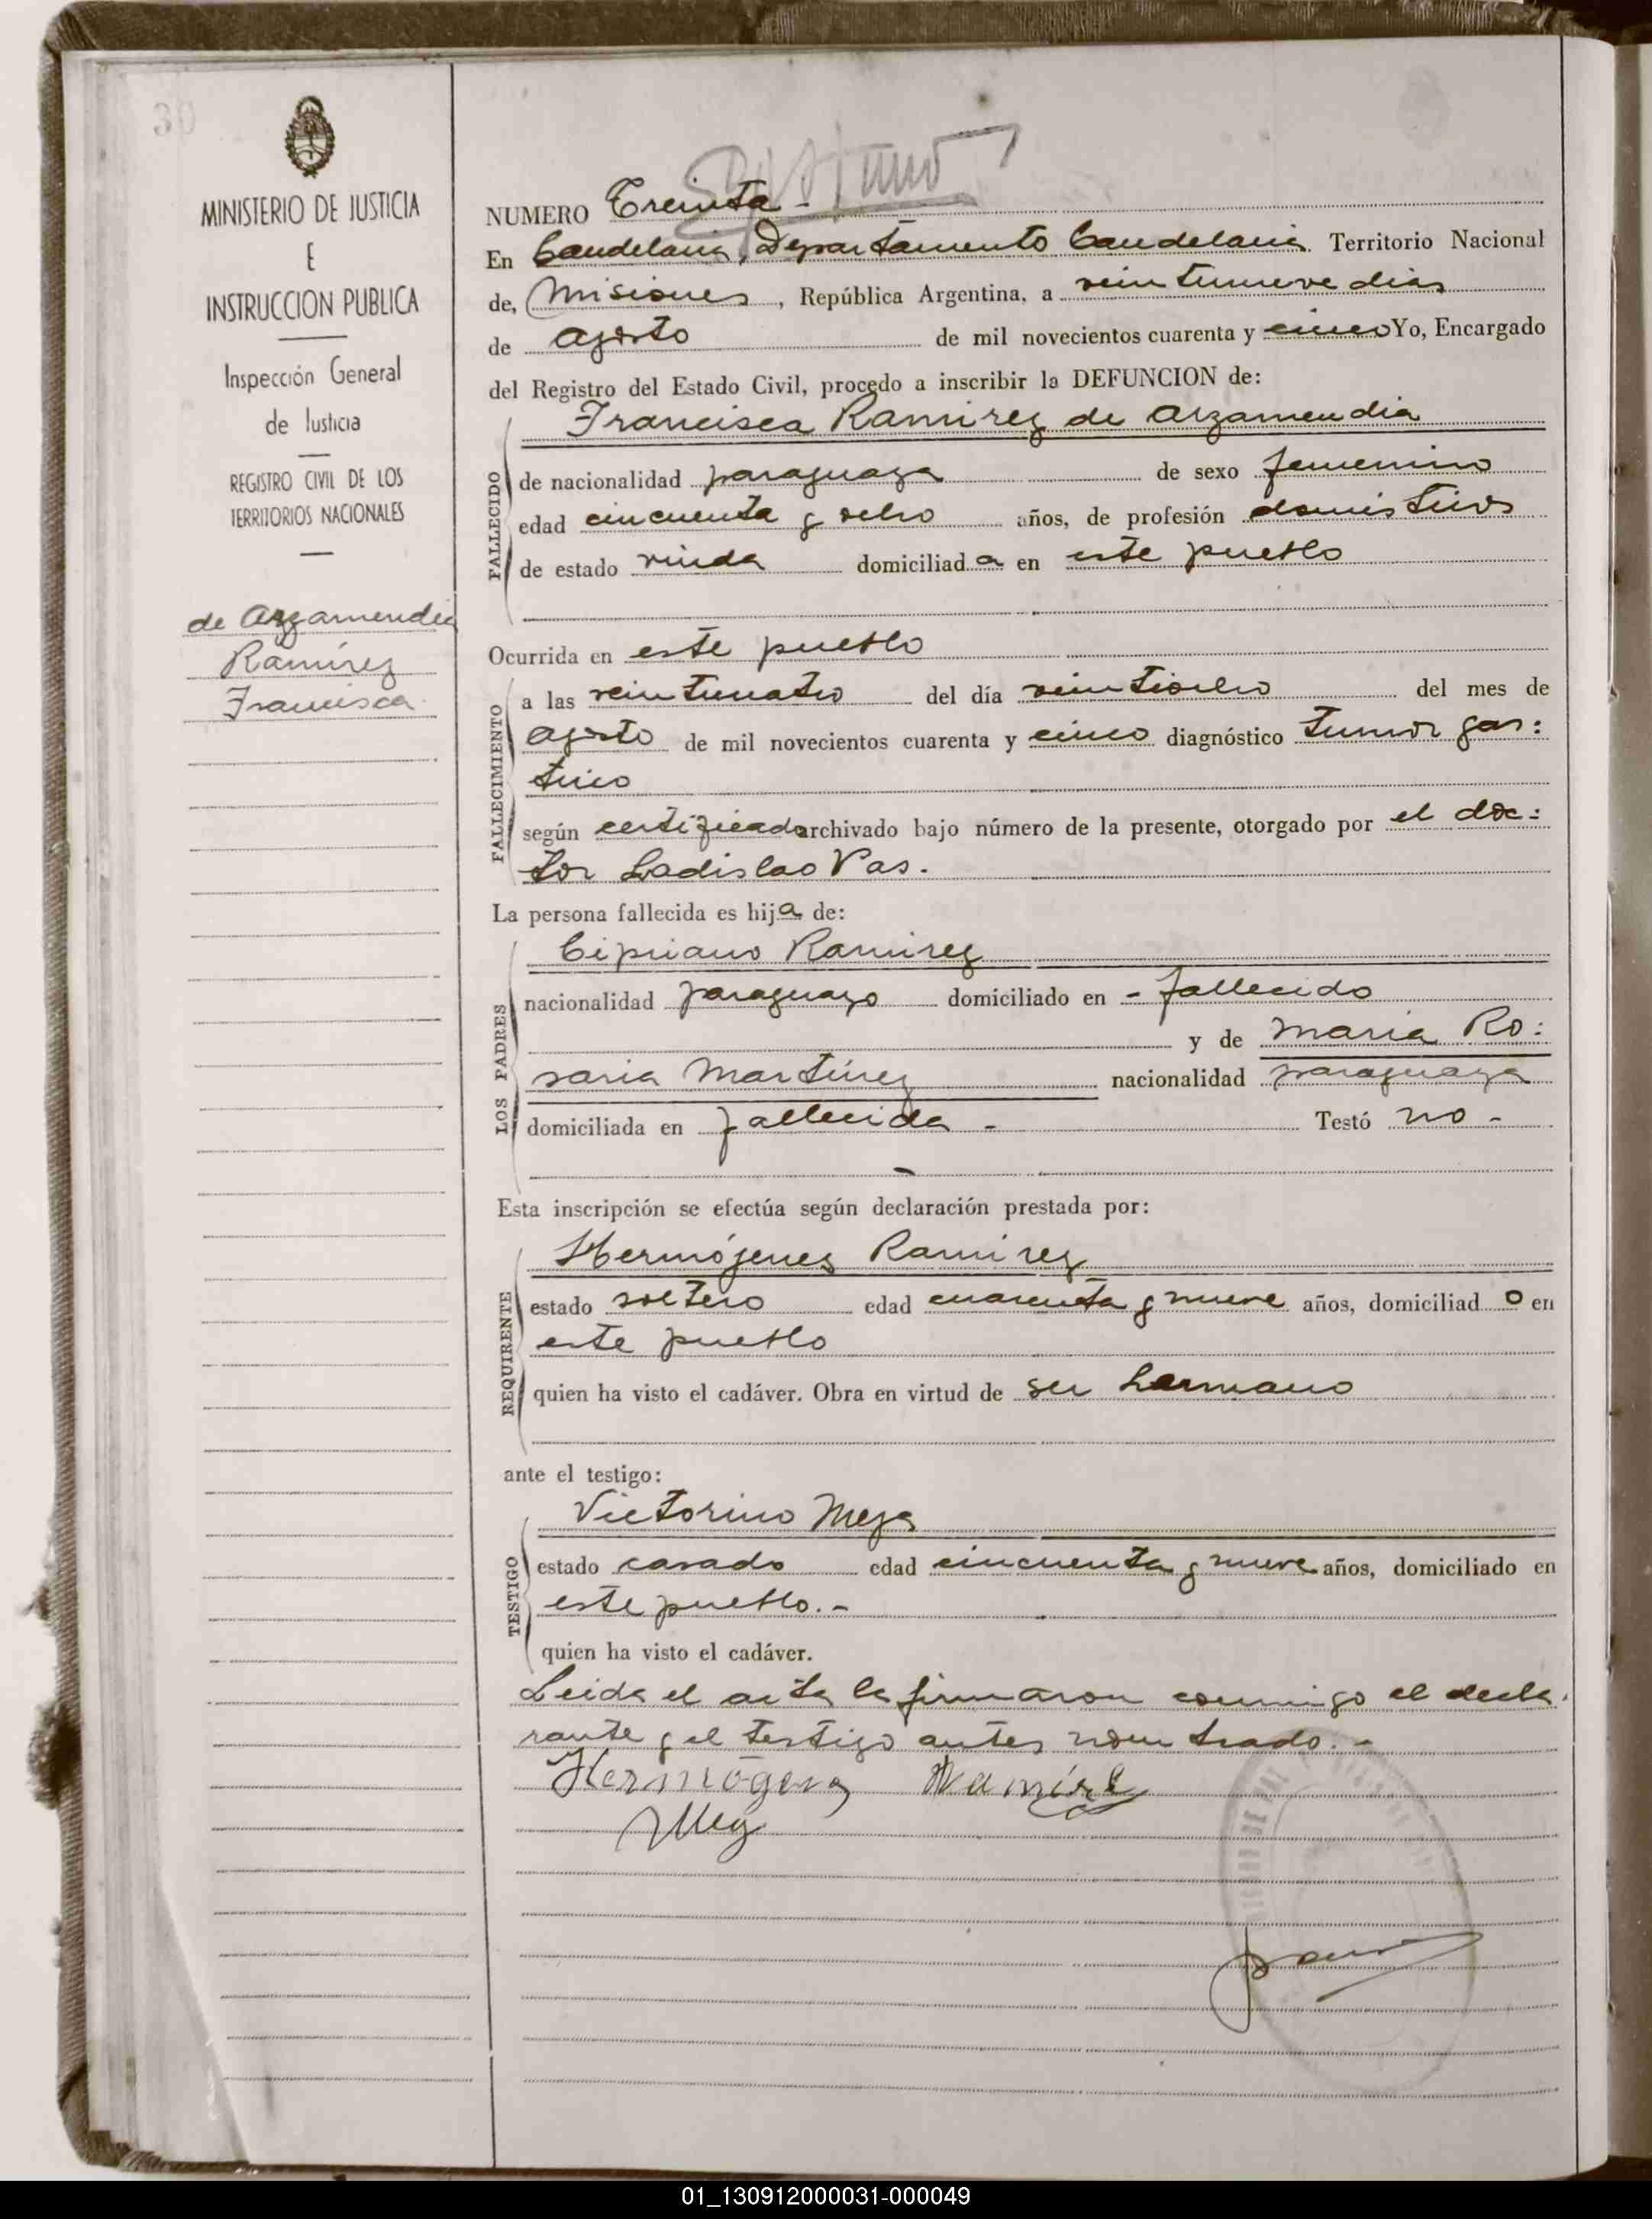 30
MINISTERIO DE JUSTICIA
E
INSTRUCCION PUBLICA
Inspección General
de Justicia
REGISTRO CIVIL DE LOS
TERRITORIOS NACIONALES
de Arzamendia
Ramírez
Francisca
NUMERO Treinta -
En Candelaria, Departamento Candelaria Territorio Nacional
de, Misiones, República Argentina, a veintinueve dias
de agosto de mil novecientos cuarenta y cinco Yo, Encargado
del Registro del Estado Civil, procedo a inscribir la DEFUNCION de:
Francisca Ramirez de Arzamendia
FALLECIDO
de nacionalidad paraguaya de sexo femenino
edad cincuenta y ocho años, de profesión domésticos
de estado viuda domiciliad a en este pueblo
Ocurrida en este pueblo
FALLECIMIENTO
a las veinticuatro del día veintiocho del mes de
agosto de mil novecientos cuarenta y cinco diagnóstico tumor gas:
trico
según certificado archivado bajo número de la presente, otorgado por el doc:
tor Ladislao Vas.
La persona fallecida es hija de:
LOS PADRES
Cipriano Ramirez
nacionalidad paraguayo domiciliado en - fallecido
y de Maria Ro:
saria Martínez nacionalidad paraguaya
domiciliada en fallecida - Testó no -
Esta inscripción se efectúa según declaración prestada por:
REQUIRENTE
Hermójenes Ramirez
estado soltero edad cuarenta y nueve años, domiciliad o en
este pueblo
quien ha visto el cadáver. Obra en virtud de ser hermano
ante el testigo:
TESTIGO
Victorino Meza
estado casado edad cincuenta y nueve años, domiciliado en
este pueblo. -
quien ha visto el cadáver.
Leida el acta la firmaron conmigo el decla
rante y el testigo antes nombrado. -
Hermogens Ramíre
01_130912000031-000049